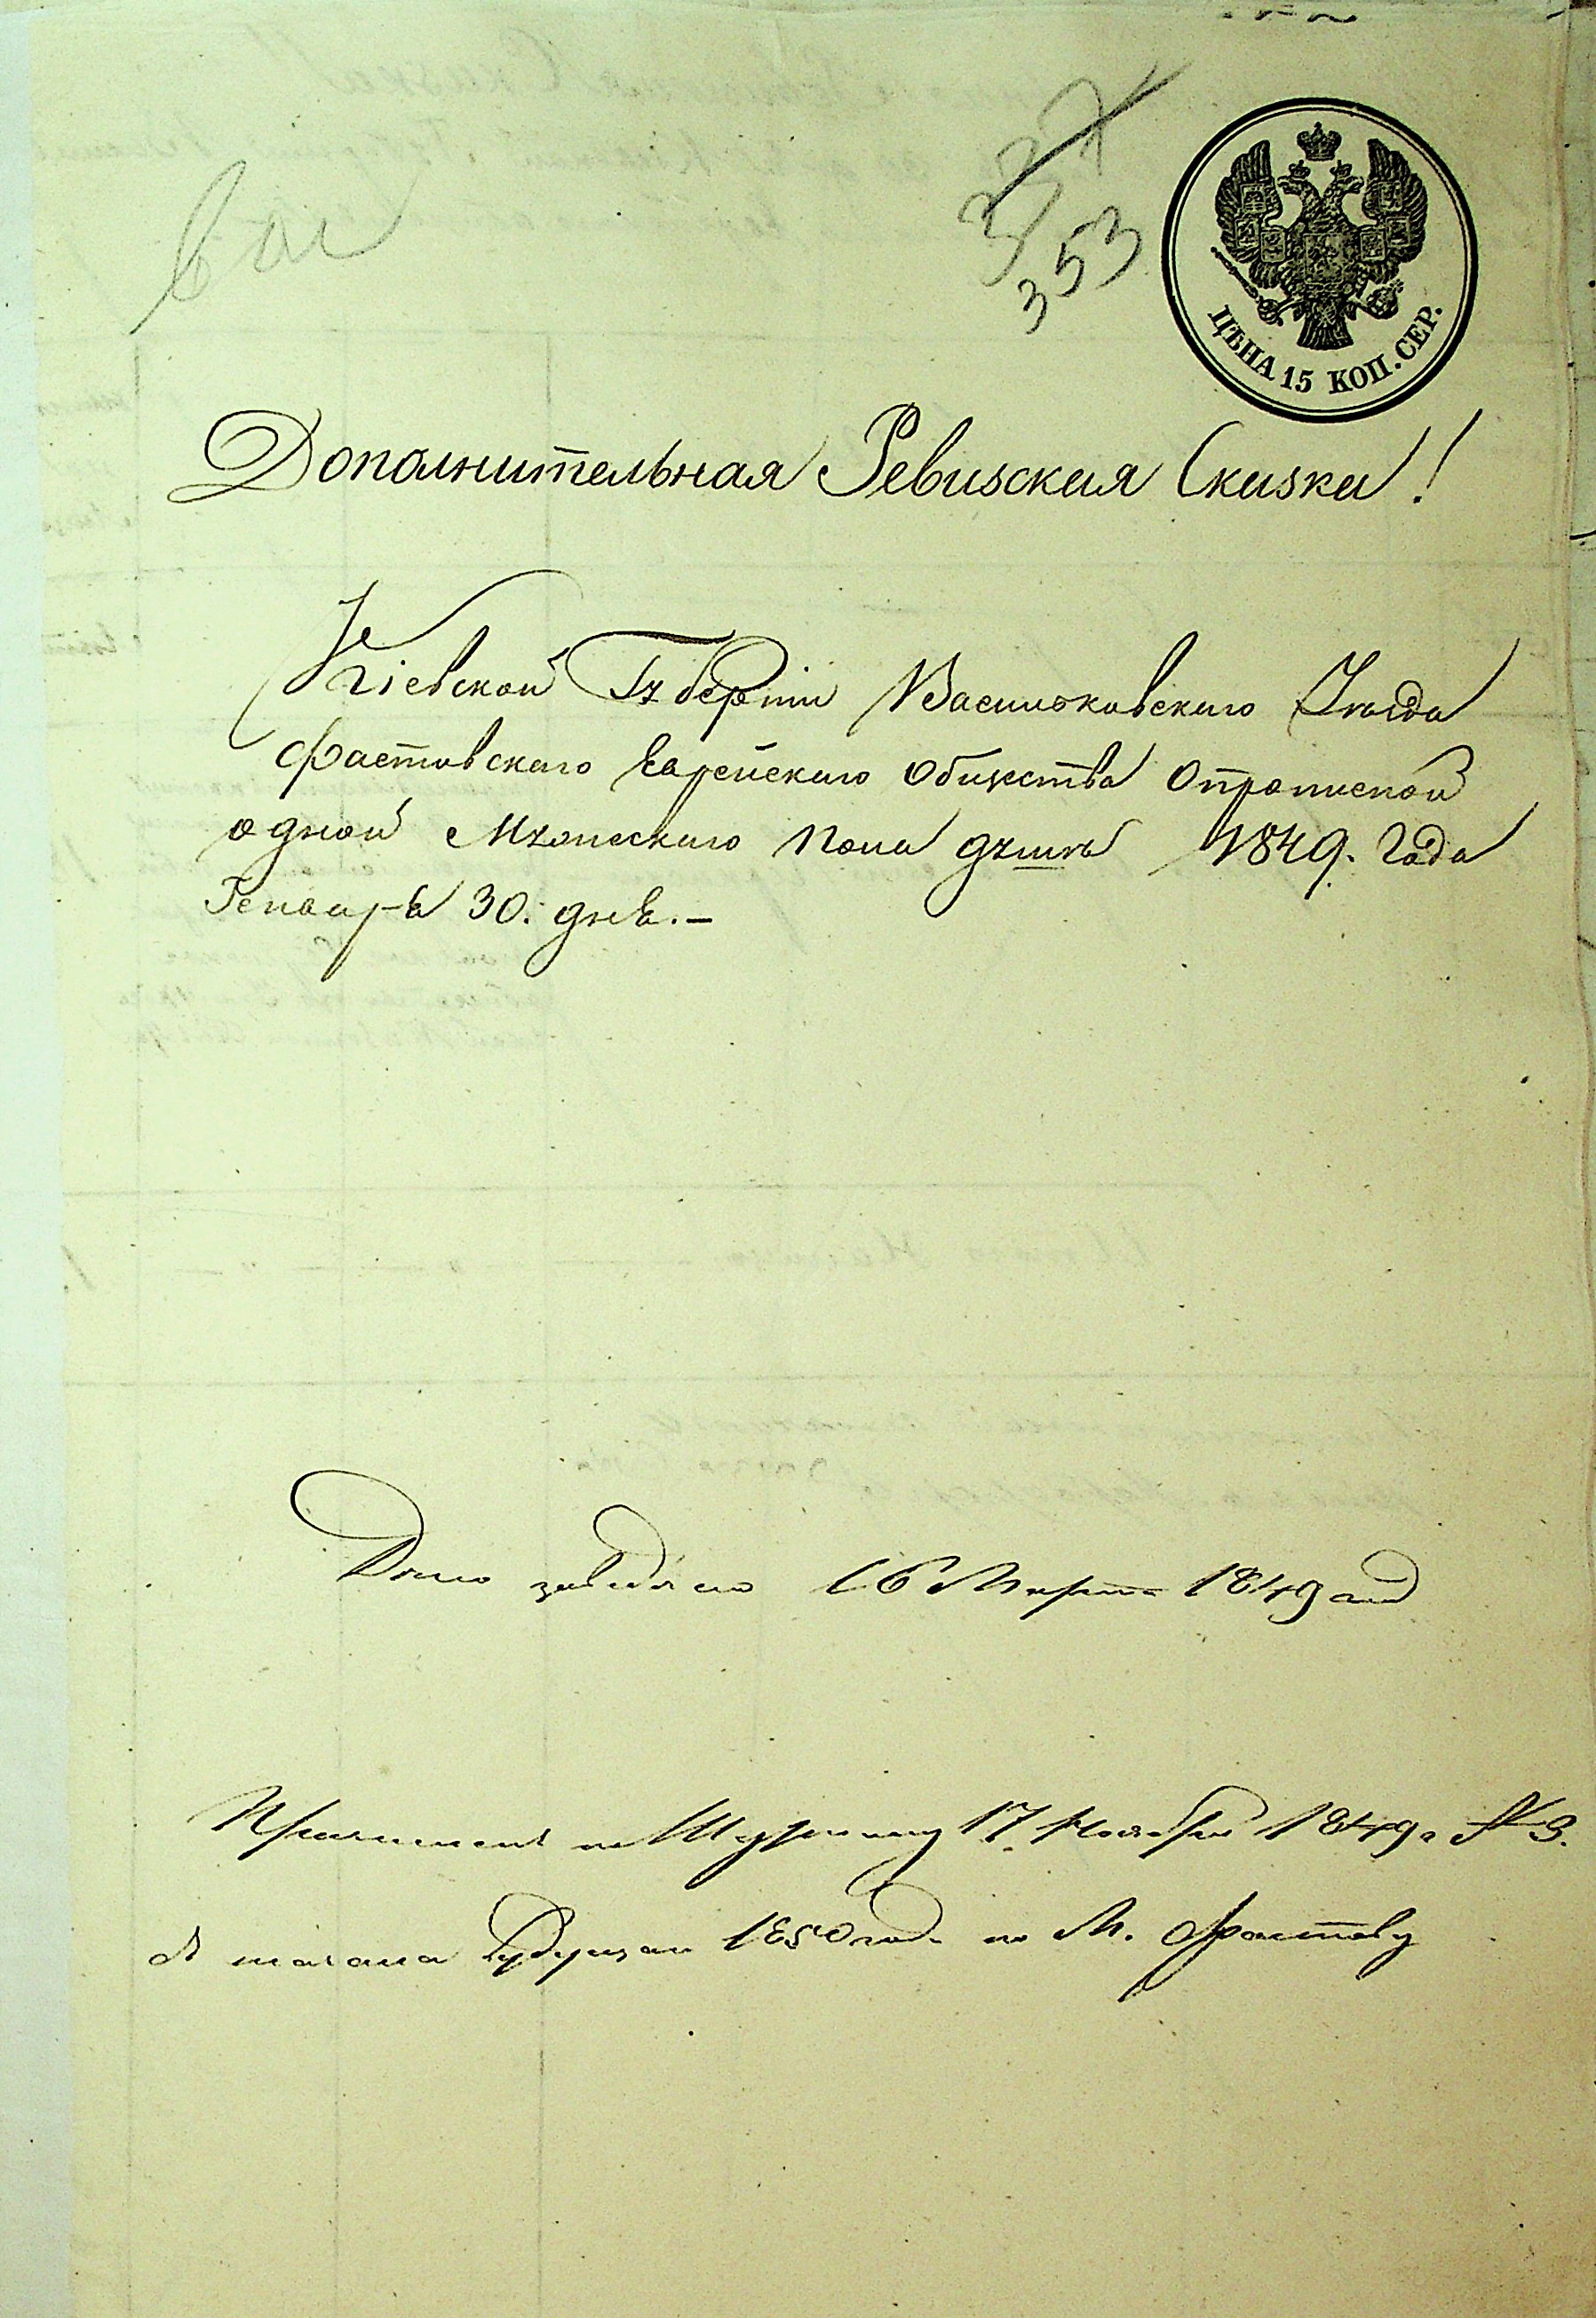 337
353
ЦѢНА 15 КОП. СЕР.
Дополнительная Ревиская Скаска!
Кіевской Губерніи Василковскаго Уѣзда
Фастовскаго Еврейскаго Общества о прописной
одной Мужескаго пола души 1849. Года
Генваря 30. дня.–
16 Марта 1849 год
17 Ноября 1849 г № 3.
1850 года по М. Фастову